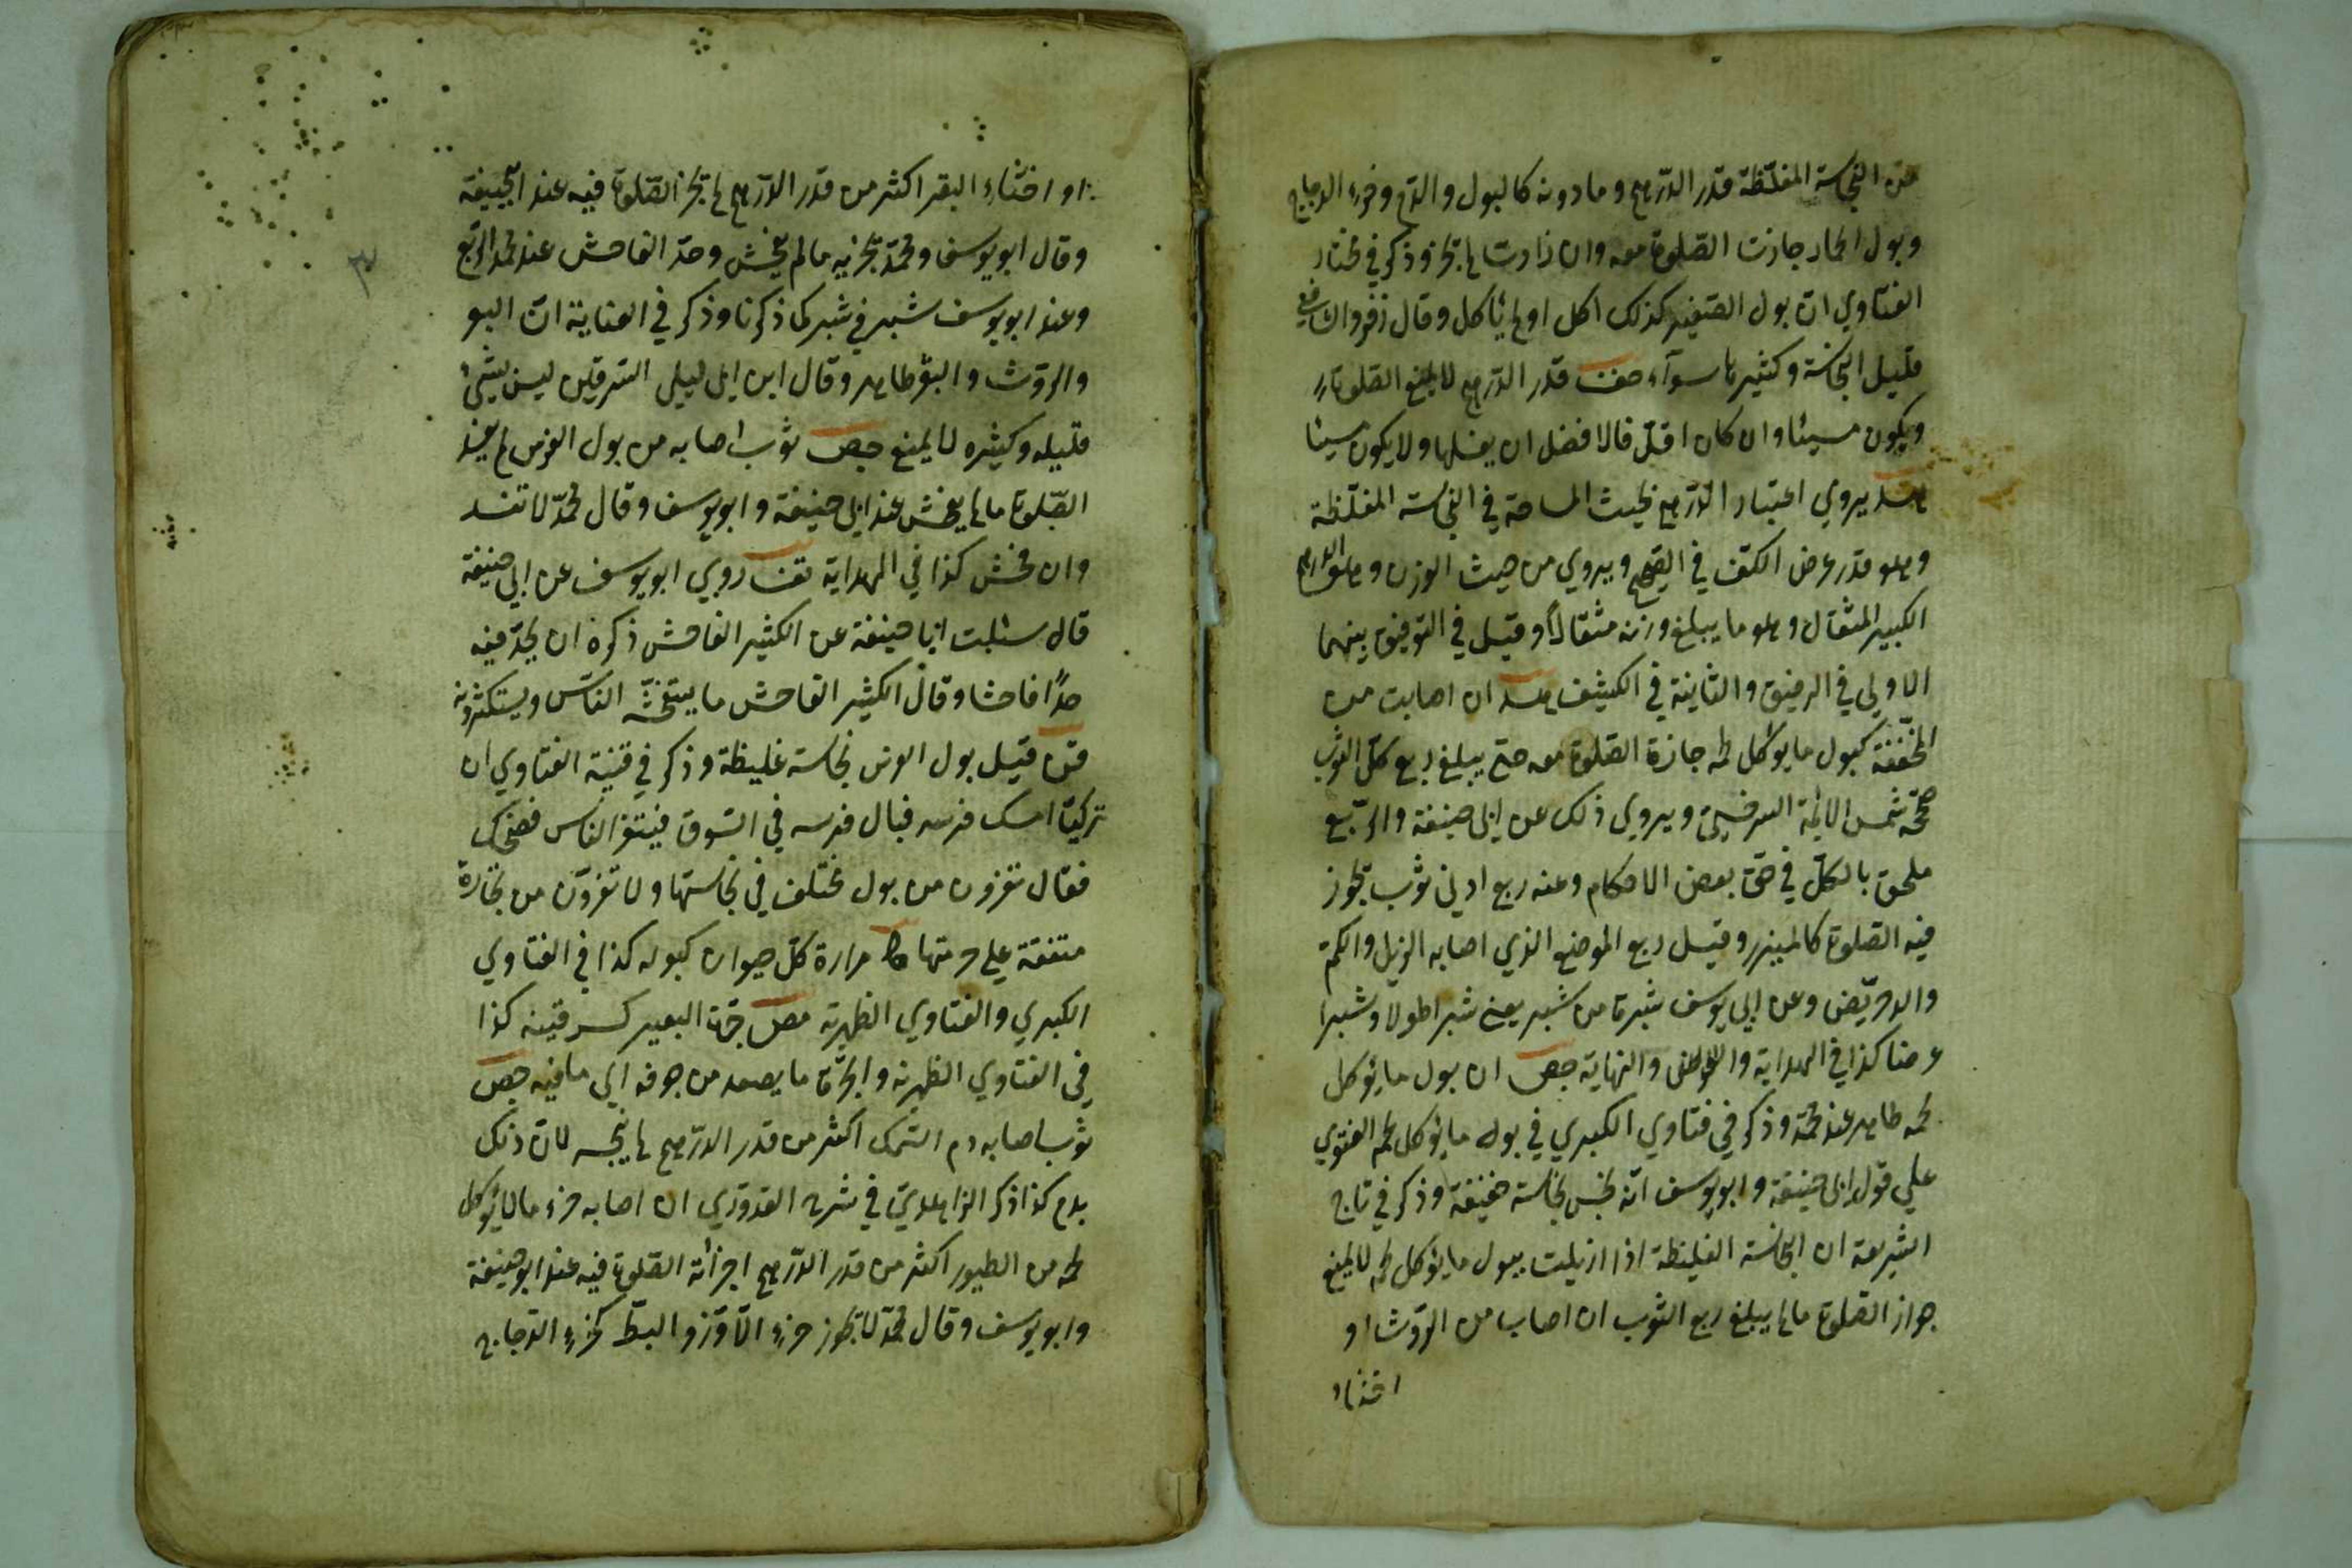 من النجاسة المغلّظة قدر الدّرهم وما دونه كالبول والدّم وخرء الدجاج
وبول الحمار جازت الصّلوة معه وان زادت لم تجز وذكر في مختار
الفتاوي انّ بول الصّغير كذلك اكل اولم يأكل وقال زفر والشافعي
قليل النّجاسة وكثيرها سوآء قدر الدّرهم لا يمنع الصّلوة
ويكون مسيئا وان كان اقلّ فالافضل ان يغسلها ولا يكون مسيئا
هد يروي اعتبار الدّرهم بحيث المساحة في النّجاسة المغلّظة
وهو قدر عرض الكفّ في الصّحيح ويروي من حيث الوزن وهو الدرهم
الكبير المثقال وهو ما يبلغ وزنه مثقالاً وقيل في التوفيق بينهما
الاولي في الرقيق والثانية في الكثيف هد ان اصابت من
المخفّفة كبول ما يؤكل لحمه جازة الصّلوة معه حتي يبلغ ربع كلّ الثوب
صحّحه شمس الائمة السرخسيّ ويروي ذلك عن ابي حنيفة والرّبع
ملحق بالكلّ في حقّ بعض الاحكام وعنه ربع ادني ثوب تجوز
فيه الصّلوة كالميزر وقيل ربع الموضع الذي اصابه الذيل والكمّ
والدخريّص وعن ابي يوسف شبرة من شبر يعني شبرا طولا وشبرا
عرضا كذا في الهداية والنهاية جص ان بول ما يؤكل
لحمه طاهر عند محمّد وذكر في فتاوي الكبري في بول ما يؤكل لحمه الفتوي
علي قول ابي حنيفة وابو يوسف انّه نجس نجاسة خفيفة وذكر في تاج
الشّريعة ان النّجاسة الغليظة اذا ازيلت ببول ما يؤكل لحمه لا يمنع
جواز الصّلوة ما لم يبلغ ربع الثوب ان اصاب من الرّوث او
اخثاء
او اخثاء البقر اكثر من قدر الدّرهم لم تجز الصّلوة فيه عند ابي حنيفة
وقال ابو يوسف ومحمّد تجزيه ما لم يفحش وحدّ الفاحش عند محمد الرّبع
وعند ابو يوسف شبر في شبر كما ذكرنا وذكر في العناية انّ البعر
والرّوث والبول طاهر وقال ابن ابي ليلي السّرقين ليس بشئ
قليله وكثيره لا يمنع جص ثوب اصابه من بول الفرس لم يفسد
الصّلوة ما لم يفحش عند ابي حنيفة وابو يوسف وقال محمّد لا تفسد
وان فحش كذا في الهداية روي ابو يوسف عن ابي حنيفة
قال سئلت ابا حنيفة عن الكثير الفاحش ذكره ان يحدّ فيه
حدًّا فاحشا وقال الكثير الفاحش ما يستفحشه النّاس ويستكثرونه
قن قيل بول الفرس نجاسة غليظة وذكر في قنية الفتاوي ان
تركيّا امسك فرسه فبال فرسه في السّوق فيتنفز النّاس فضحك
فقال تنفزون من بول مختلف في نجاستها ولا تنفزون من تجارة
متفقة علي حرمتها مرارة كلّ حيوان كبوله كذا في الفتاوي
الكبري والفتاوي الظهريّة جرّة البعير كسرقينه كذا
في الفتاوي الظهريّة والجرّة ما يصعد من جوفه الي ما فيه جص
ثوب اصابه دم السّمك اكثر من قدر الدّرهم لم ينجسه لانّ ذلك
بدم كذا ذكر الزاهديّ في شرح القدوري ان اصابه خرء ما لا يؤكل
لحمه من الطيور اكثر من قدر الدّرهم اجزأته الصّلوة فيه عند ابو حنيفة
وابو يوسف وقال محمّد لا تجوز خرء الاوزّ والبطّ كخرء الدّجاج